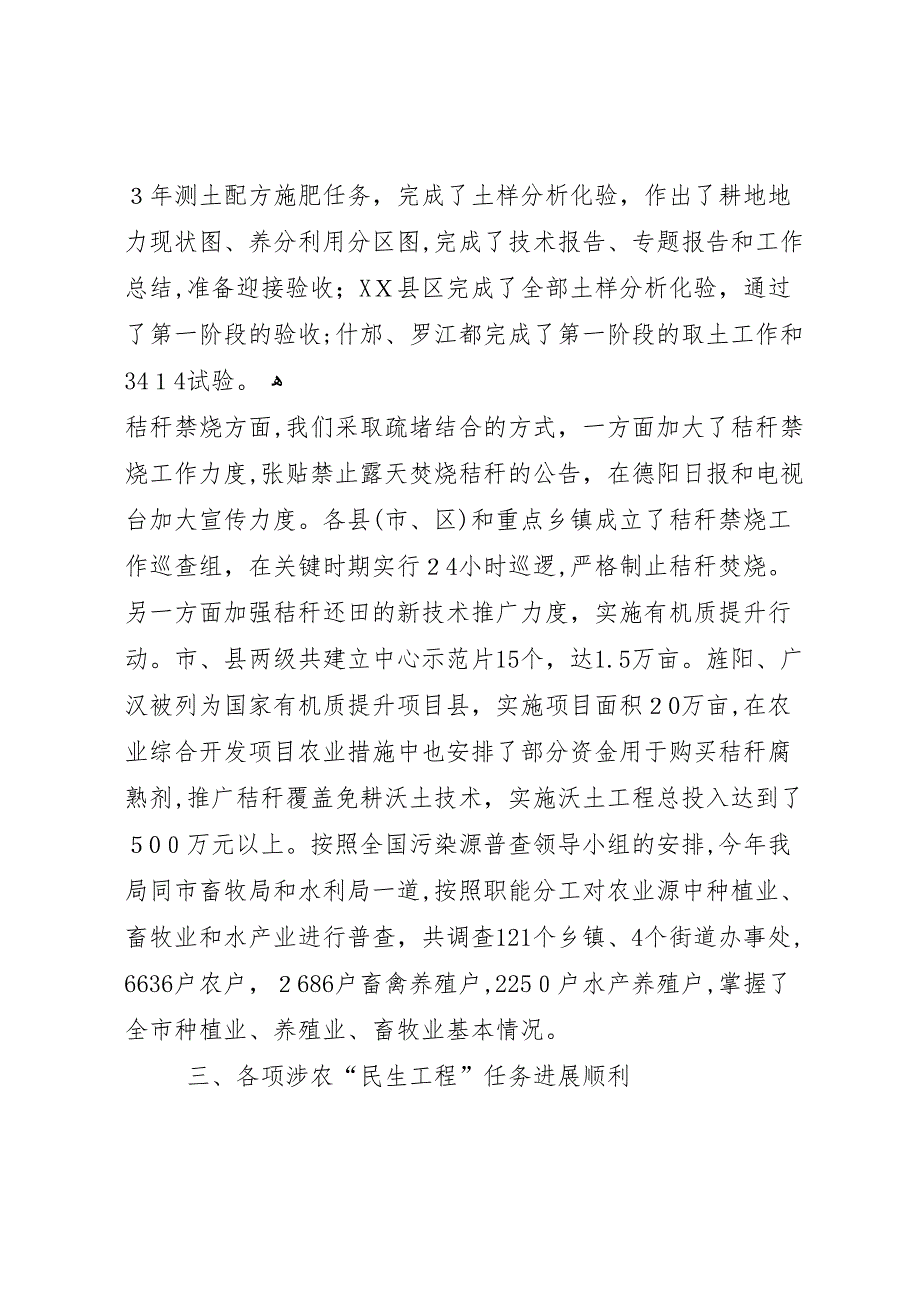 3年测土配方施肥任务，完成了土样分析化验，作出了耕地地
力现状图、养分利用分区图,完成了技术报告、专题报告和工作
总结,准备迎接验收；XX县区完成了全部土样分析化验，通过
了第一阶段的验收;什邡、罗江都完成了第一阶段的取土工作和
3414试验。 ﻫ
秸秆禁烧方面,我们采取疏堵结合的方式，一方面加大了秸秆禁
烧工作力度,张贴禁止露天焚烧秸秆的公告，在德阳日报和电视
台加大宣传力度。各县(市、区)和重点乡镇成立了秸秆禁烧工
作巡查组，在关键时期实行24小时巡逻,严格制止秸秆焚烧。
另一方面加强秸秆还田的新技术推广力度，实施有机质提升行
动。市、县两级共建立中心示范片15个，达1.5万亩。旌阳、广
汉被列为国家有机质提升项目县，实施项目面积20万亩,在农
业综合开发项目农业措施中也安排了部分资金用于购买秸秆腐
熟剂,推广秸秆覆盖免耕沃土技术，实施沃土工程总投入达到了
500万元以上。按照全国污染源普查领导小组的安排,今年我
局同市畜牧局和水利局一道,按照职能分工对农业源中种植业、
畜牧业和水产业进行普查，共调查121个乡镇、4个街道办事处,
6636户农户，2686户畜禽养殖户,2250户水产养殖户,掌握了
全市种植业、养殖业、畜牧业基本情况。
三、各项涉农“民生工程”任务进展顺利